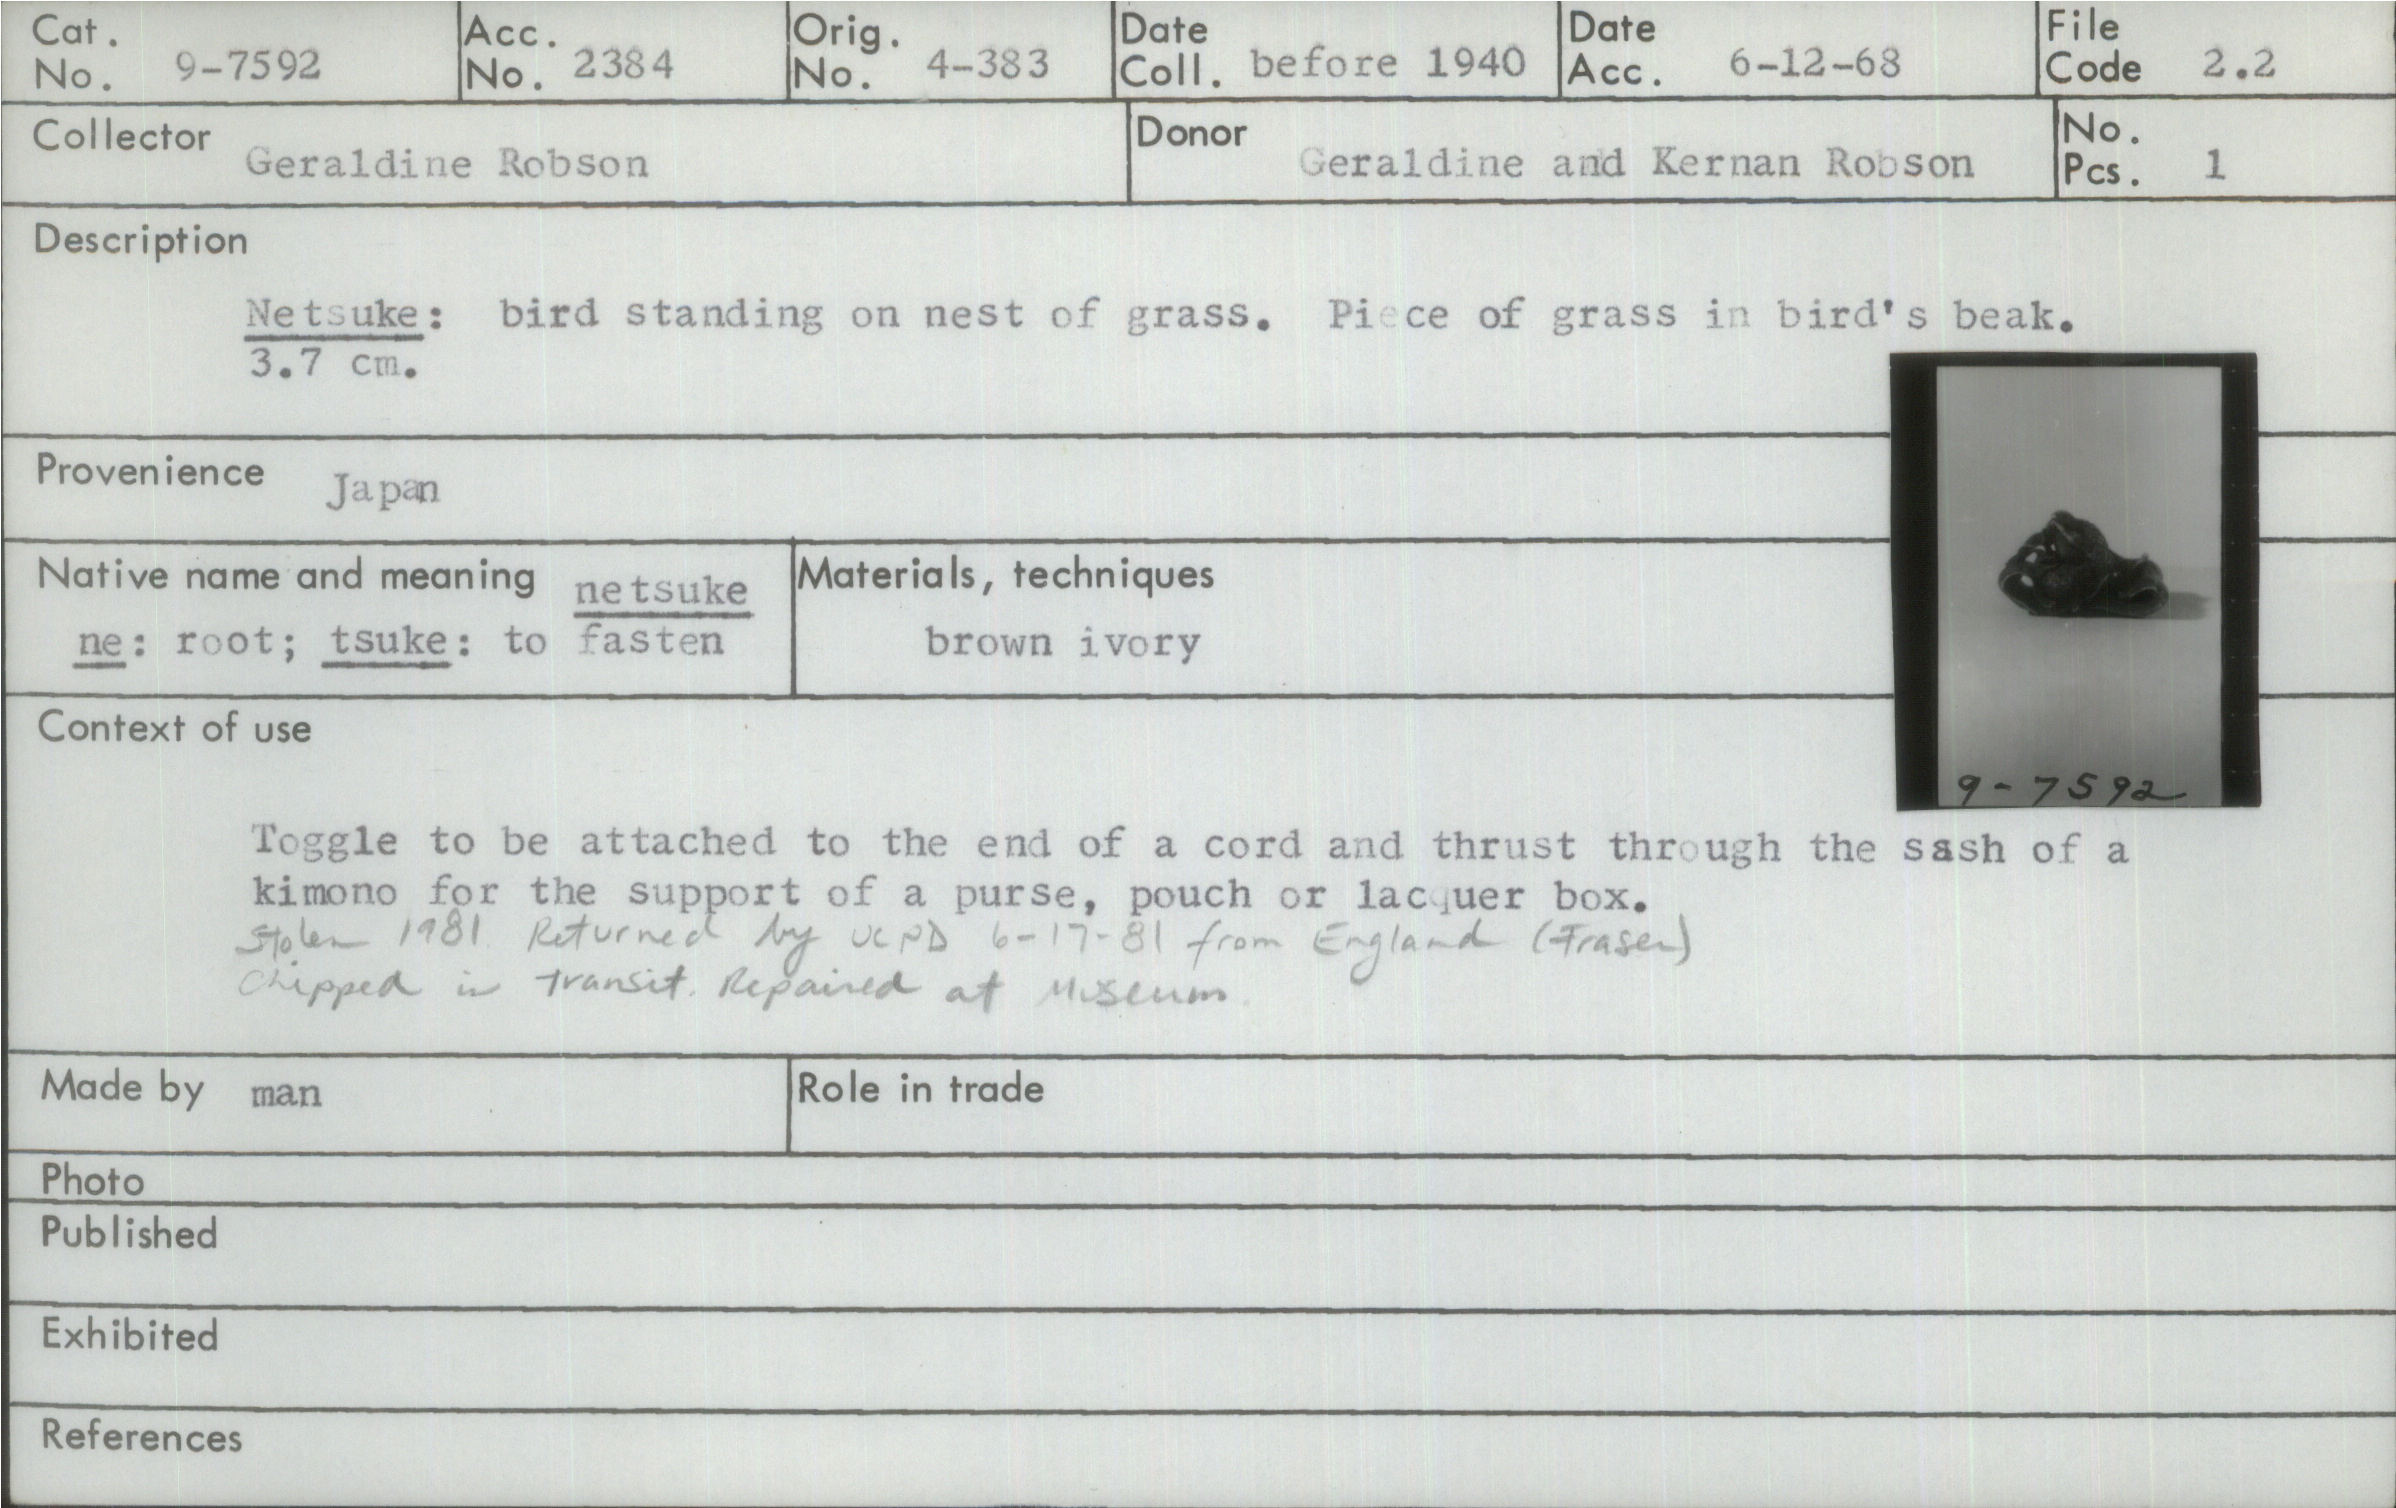 Cat. No. 9-7592
Acc. No. 2384
Orig. No. 4-383
Date Coll. before 1940
Date Acc. 6-12-68
File Code 2.2
Collector Geraldine Robson
Donor Geraldine and Kernan Robson
No. Pcs. 1
Description
Netsuke: bird standing on nest of grass. Piece of grass in bird's beak.
3.7 cm.
Provenience Japan
Native name and meaning netsuke
ne: root; tsuke: to fasten
Materials, techniques
brown ivory
9-7592
Context of use
Toggle to be attached to the end of a cord and thrust through the sash of a
kimono for the support of a purse, pouch or lacquer box.
Stolen 1981 Returned by UCPD 6-17-81 from England (Fraser)
Chipped in transit. Repaired at Museum.
Made by man
Role in trade
Photo
Published
Exhibited
References